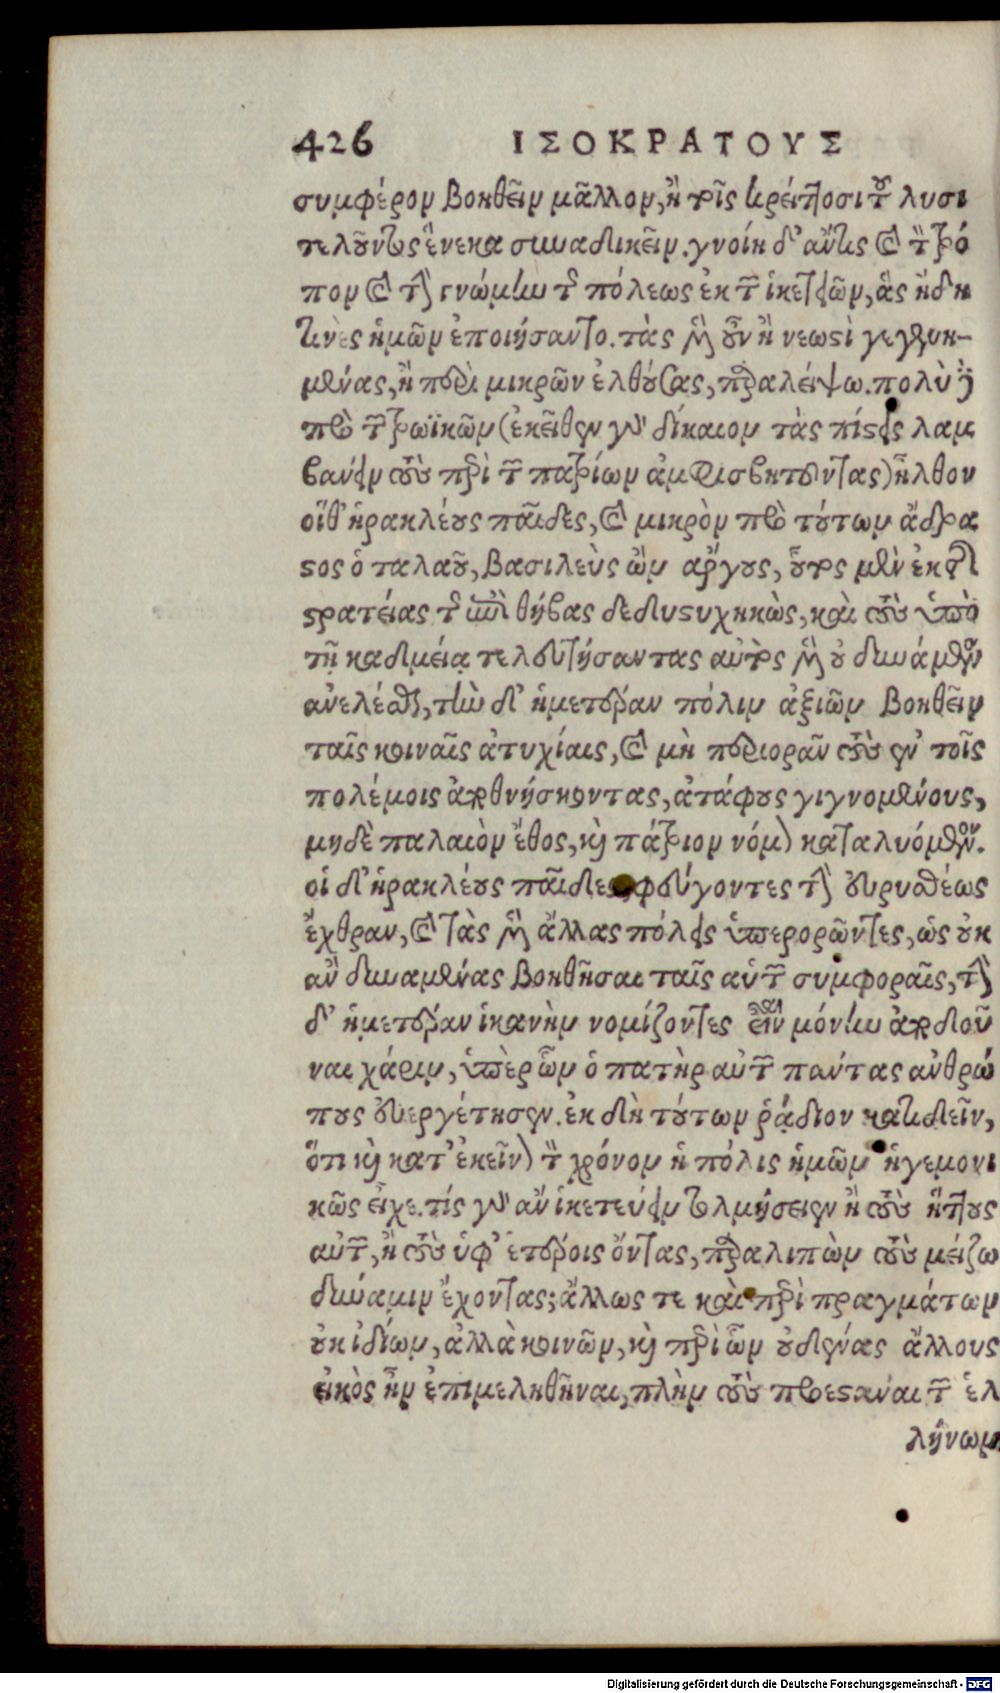 426 ΙΣΟΚΡΑΤΟΥΣ
συμφέρον βοηθεῖν μᾶλλον, ἢ τοῖς κρείττοσι τοῦ λυσι
τελοῦντος ἕνεκα συναδικεῖν. γνοίη δ' ἄν τις καὶ τὸν τρό
πον καὶ τὴν γνώμην τῆς πόλεως ἐκ τῶν ἱκετειῶν, ἃς ἤδη
τινὲς ἡμῶν ἐποιήσαντο. τὰς μὲν οὖν ἢ νεωστὶ γεγενη-
μένας, ἢ περὶ μικρῶν ἐλθούσας, παραλείψω. πολὺ δὲ
πρὸ τῶν τρωϊκῶν (ἐκεῖθεν γὰρ δίκαιον τὰς πίστεις λαμ
βάνειν τοὺς περὶ τῶν πατρίων ἀμφισβητοῦντας) ἦλθον
οἵθ' ἡρακλέους παῖδες, καὶ μικρὸν πρὸ τούτων ἄδρα
στος ὁ ταλαοῦ, βασιλεὺς ὢν ἄργους, οὗτος μὲν ἐκ τῆς
στρατείας τῆς ἐπὶ θήβας δεδυστυχηκὼς, καὶ τοὺς ὑπὸ
τῇ καδμείᾳ τελευτήσαντας αὐτὸς μὲν οὐ δυνάμενος
ἀνελέσθαι, τὴν δ' ἡμετέραν πόλιν ἀξιῶν βοηθεῖν
ταῖς κοιναῖς ἀτυχίαις, καὶ μὴ περιορᾶν τοὺς ἐν τοῖς
πολέμοις ἀποθνήσκοντας, ἀτάφους γιγνομένους,
μηδὲ παλαιὸν ἔθος, καὶ πάτριον νόμον καταλυόμενον.
οἱ δ' ἡρακλέους παῖδες φεύγοντες τὴν εὐρυσθέως
ἔχθραν, καὶ τὰς μὲν ἄλλας πόλεις ὑπερορῶντες, ὡς οὐκ
ἂν δυναμένας βοηθῆσαι ταῖς αὑτῶν συμφοραῖς, τὴν
δ' ἡμετέραν ἱκανὴν νομίζοντες εἶναι μόνην ἀποδοῦ
ναι χάριν, ὑπὲρ ὧν ὁ πατὴρ αὐτῶν πάντας ἀνθρώ
πους εὐεργέτησεν. ἐκ δὴ τούτων ῥᾴδιον κατιδεῖν,
ὅτι καὶ κατ' ἐκεῖνον τὸν χρόνον ἡ πόλις ἡμῶν ἡγεμονι
κῶς εἶχε. τίς γὰρ ἂν ἱκετεύειν τολμήσειεν ἢ τοὺς ἥττους
αὑτῶν, ἢ τοὺς ὑφ' ἑτέροις ὄντας, παραλιπὼν τοὺς μείζω
δύναμιν ἔχοντας; ἄλλως τε καὶ περὶ πραγμάτων
οὐκ ἰδίων, ἀλλὰ κοινῶν, καὶ περὶ ὧν οὐδένας ἄλλους
εἰκὸς ἦν ἐπιμεληθῆναι, πλὴν τοὺς προεστάναι τῶν ἑλ
λήνων
Digitalisierung gefördert durch die Deutsche Forschungsgemeinschaft - DFG